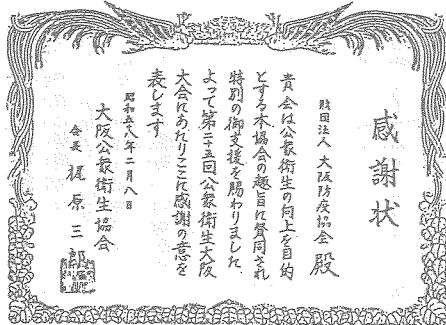 感謝状
財団法人 大阪防疫協会 殿
貴会は公衆衛生の向上を目的
とする本協会の趣旨に賛同され
特別の御支援を賜わりました
よって第二十五回公衆衛生大阪
大会にあたりここに感謝の意を
表します
昭和五十八年二月八日
大阪公衆衛生協会
会長 梶原三郎